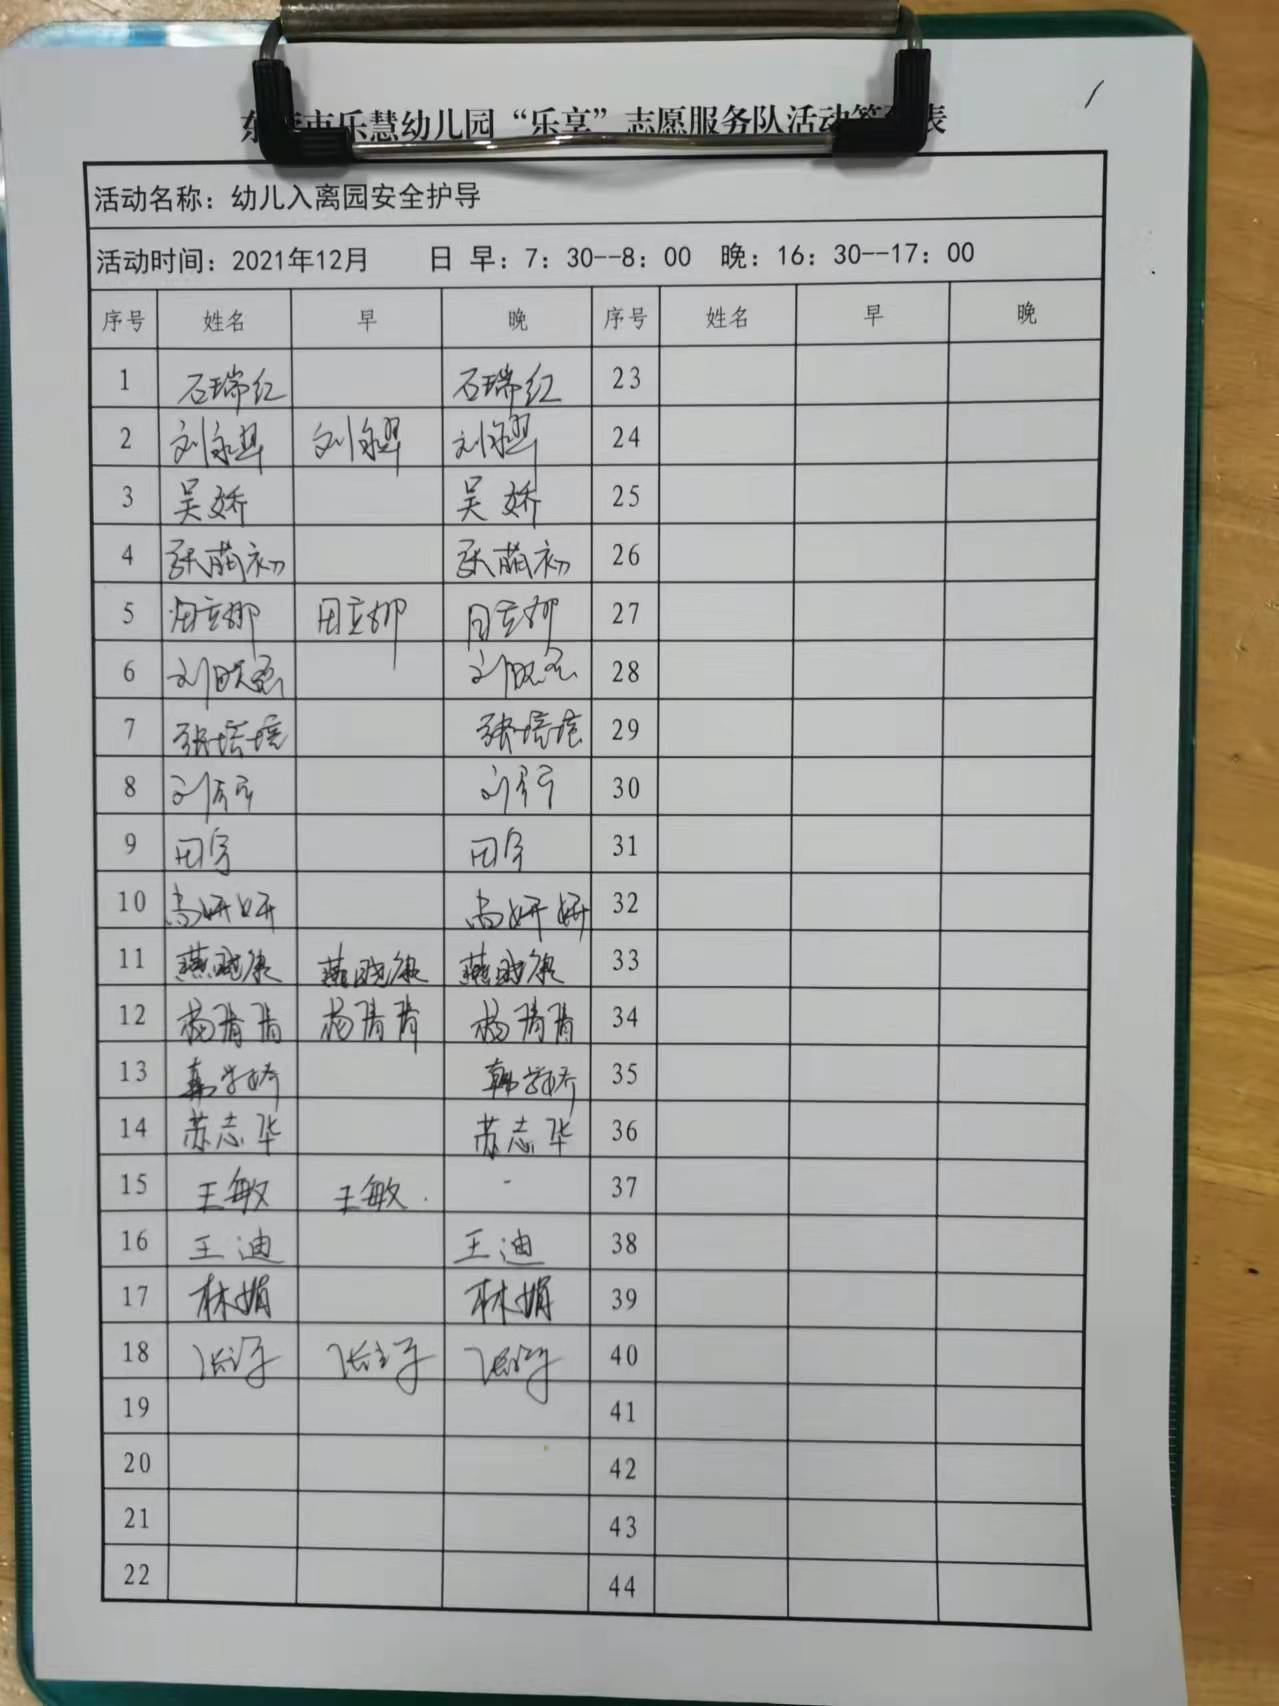 市乐慧幼儿园“乐享”志愿服务队活动 表
活动名称：幼儿入离园安全护导
活动时间：2021年12月 日 早：7：30--8：00 晚：16：30--17：00
序号 姓名 早 晚 序号 姓名 早 晚
1 石瑞红 石瑞红 23
2 刘 刘 刘 24
3 吴娇 吴娇 25
4 张萌初 张萌初 26
5 田立娜 田立娜 田立娜 27
6 刘晓磊 刘晓磊 28
7 张培培 张培培 29
8 刘 刘 30
9 田 田 31
10 尚妍妍 尚妍妍 32
11 燕晓康 燕晓康 燕晓康 33
12 杨清清 杨清清 杨清清 34
13 韩学娇 韩学娇 35
14 苏志华 苏志华 36
15 王敏 王敏 37
16 王迪 王迪 38
17 林娟 林娟 39
18 40
19 41
20 42
21 43
22 44